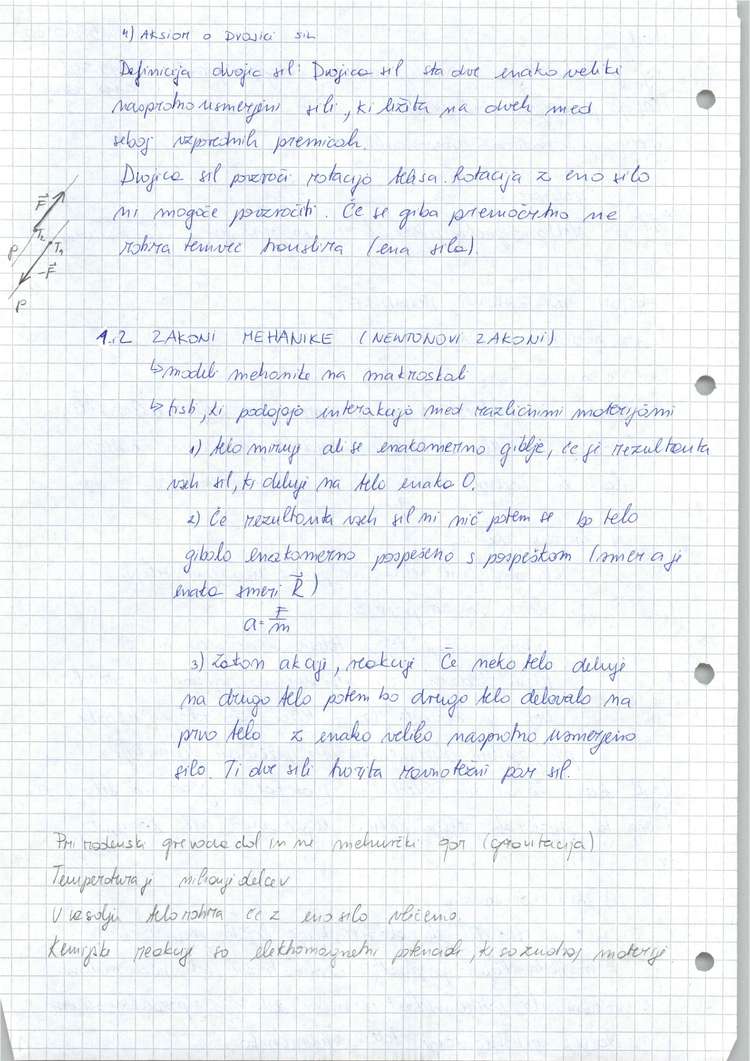 4) AKSIOM O DVOJICI SIL
Definicija dvojic sil: Dvojica sil sta dve enako veliki
nasprotno usmerjeni sili, ki ližita na dveh med
seboj vzporednih premicah.
Dvojica sil povzroči rotacijo telesa. Rotacija z eno silo
ni mogoče povzročiti. Če se giba premočrtno ne
rotira temveč translira (ena sila).
F
T₂
p
T₁
-F
p
1.2 ZAKONI MEHANIKE (NEWTONOVI ZAKONI)
↳ modeli mehanike na makroskali
↳ tisti, ki podajajo interakcijo med različnimi materijami
1) telo miruje ali se enakomerno giblje, če je rezultanta
vseh sil, ki deluje na telo enako 0.
2) Če rezultanta vseh sil ni nič potem se bo telo
gibalo enakomerno pospešeno s pospeškom (smer a je
enaka smeri R)
a = F/m
3) Zakon akcije, reakcije Če neko telo deluje
na drugo telo potem bo drugo telo delovalo na
prvo telo z enako veliko nasprotno usmerjeno
silo. Ti dve sili tvorita ravnotežni par sil.
Pri gre voda dol in ne mehurčki gor (gravitacija)
Temperatura je delcev
V vesolju telo rotira če z eno silo vlečemo
Kemijske reakcije so elektromagnetni potenciali, ki so znotraj materije